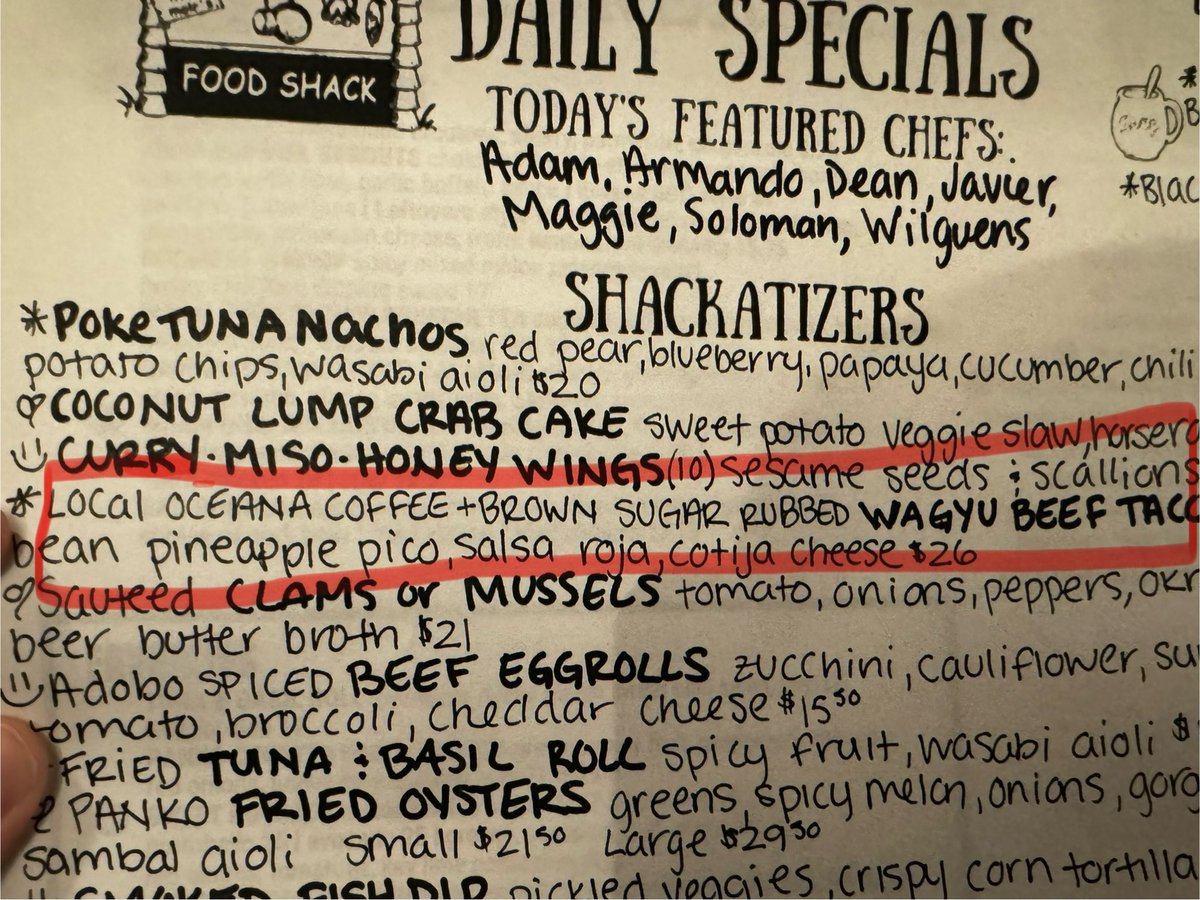 FOOD SHACK
DAILY SPECIALS
TODAY'S FEATURED CHEFS:
Adam, Armando, Dean, Javier,
Maggie, Soloman, Wilguens
*Blac
SHACKATIZERS
*POKE TUNA Nachos red pear, blueberry, papaya, cucumber, chili
potato chips, wasabi aioli $20
COCONUT LUMP CRAB CAKE sweet potato veggie slaw, horsera
CURRY·MISO·HONEY WINGS (10) sesame seeds & scallions
*LOCAL OCEANA COFFEE + BROWN SUGAR RUBBED WAGYU BEEF TACO
bean pineapple pico, salsa roja, cotija cheese $26
Sauteed CLAMS or MUSSELS tomato, onions, peppers, okr
beer butter broth $21
Adobo SPICED BEEF EGGROLLS zucchini, cauliflower, su
tomato, broccoli, cheddar cheese $15⁵⁰
FRIED TUNA & BASIL ROLL spicy fruit, wasabi aioli $
PANKO FRIED OYSTERS greens, spicy melon, onions, gorg
sambal aioli small $21⁵⁰ Large $29⁵⁰
SMOKED FISH DIP pickled veggies, crispy corn tortilla